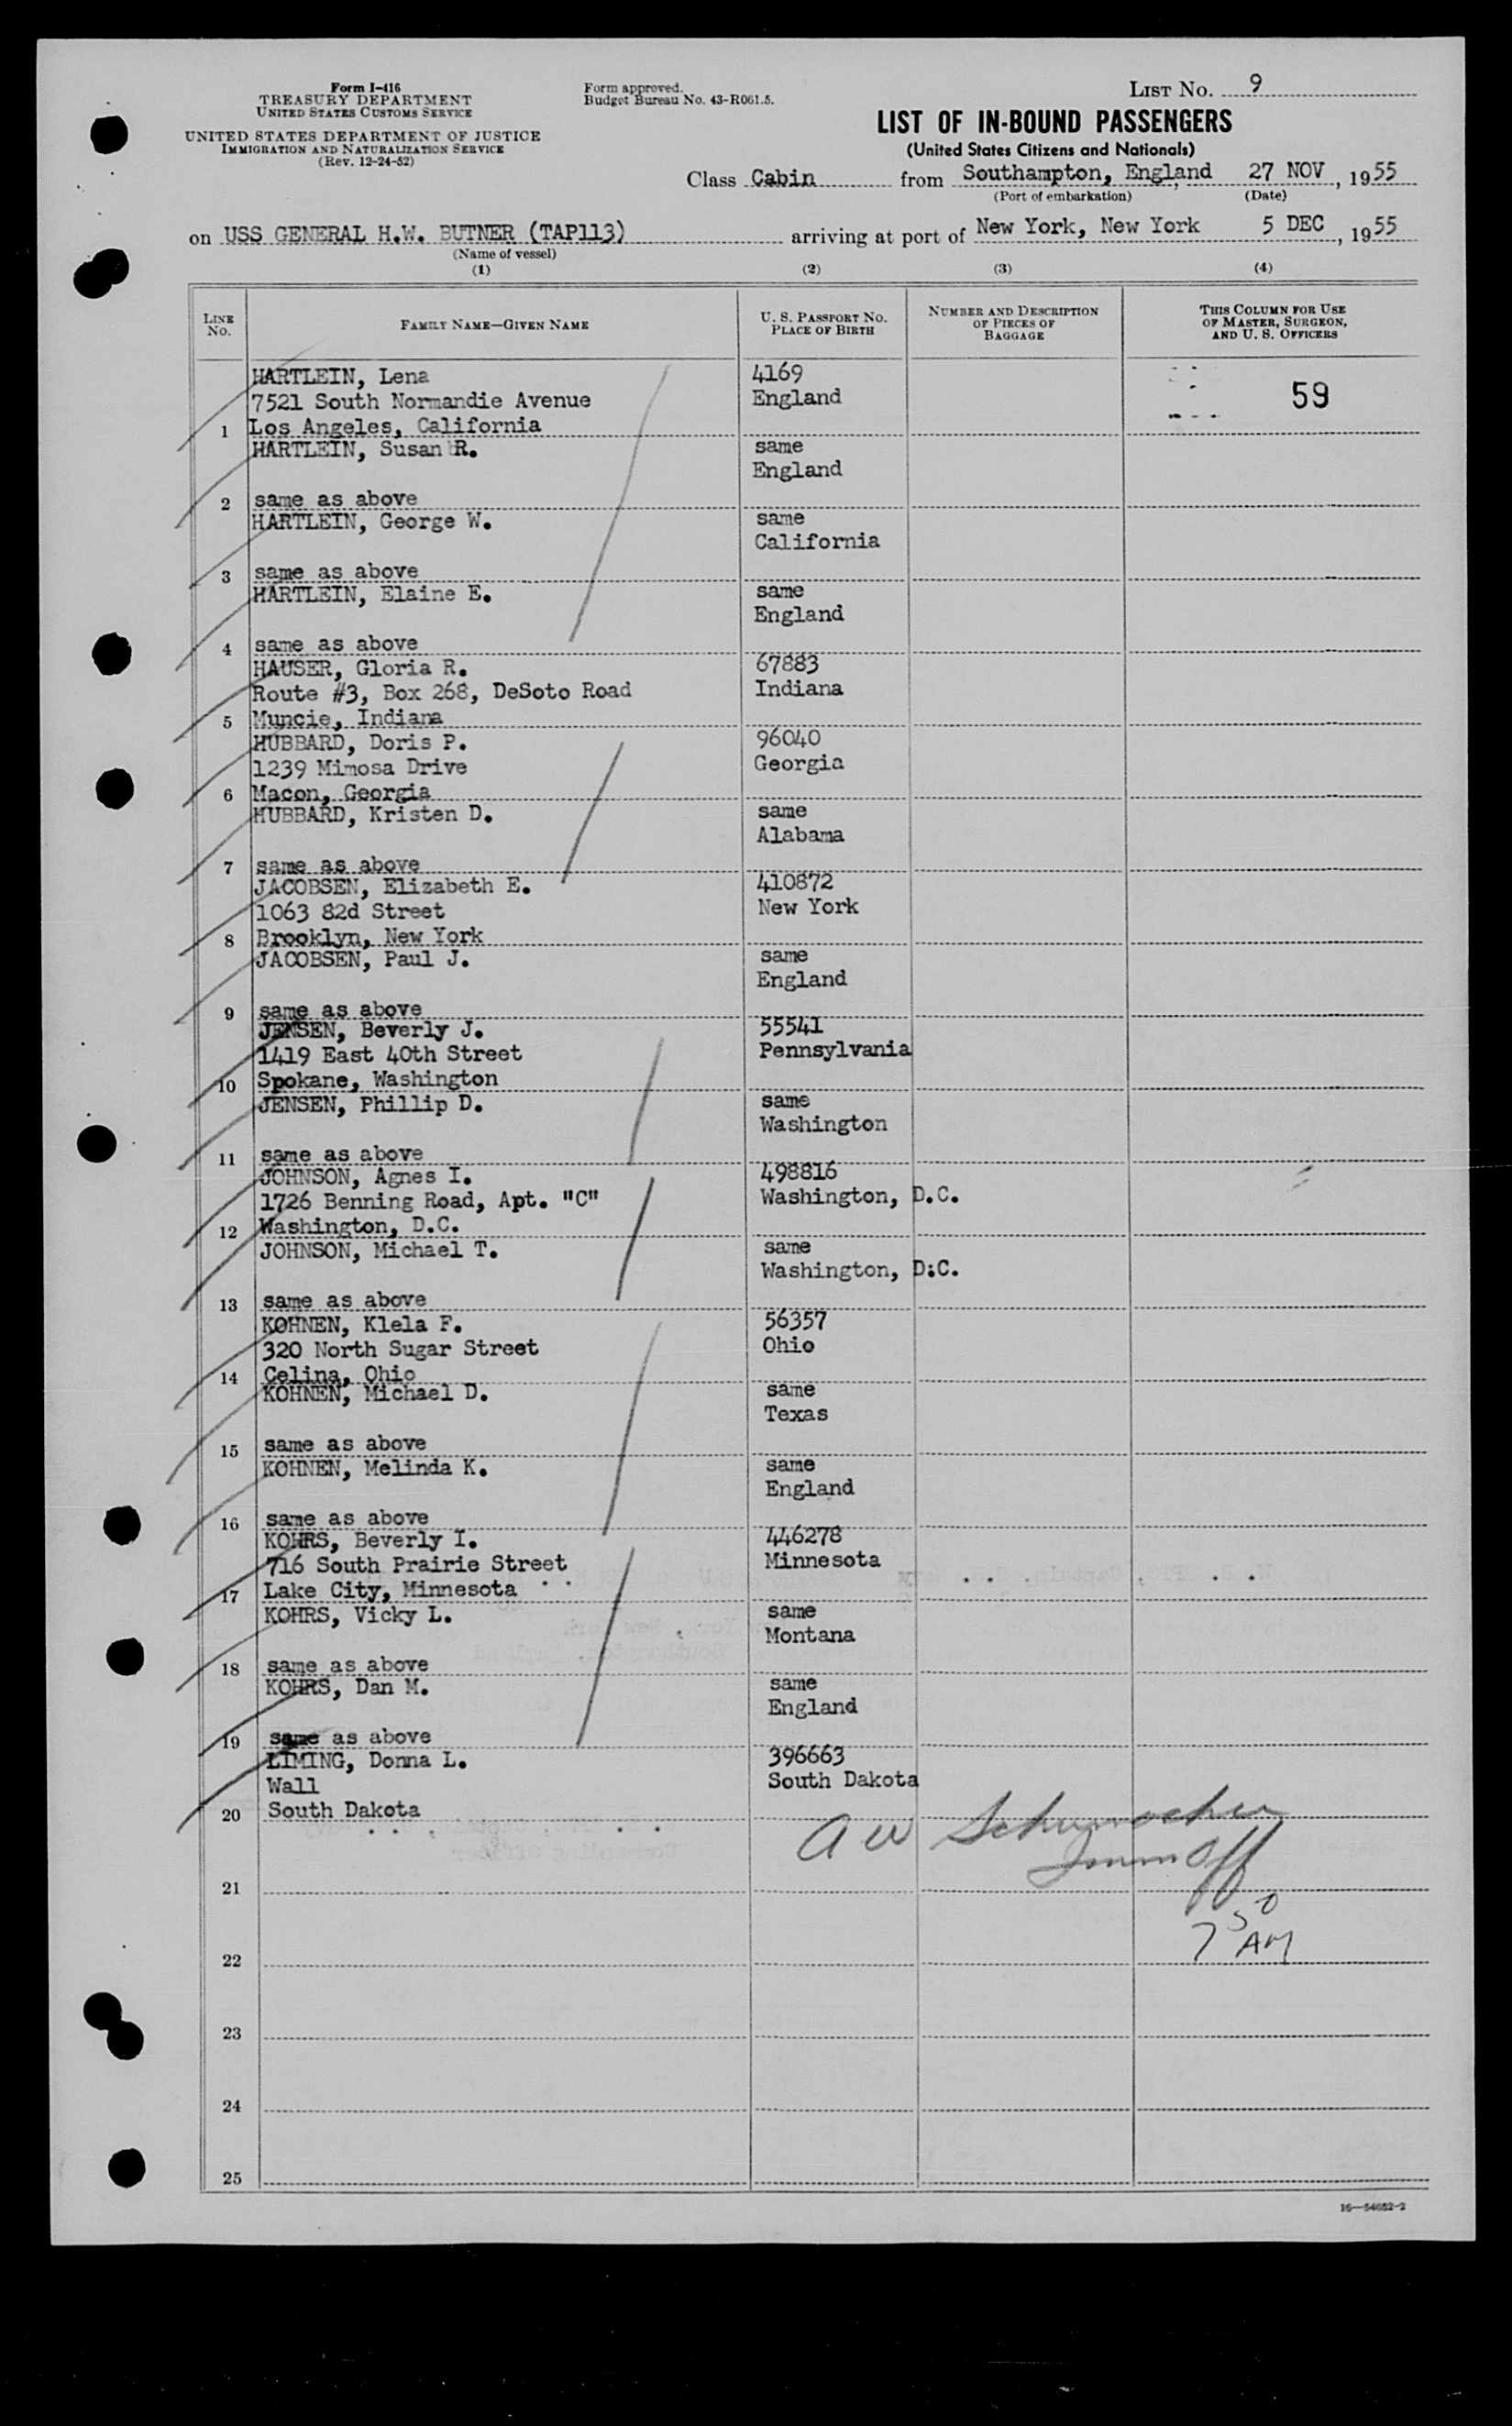 Form I-416
TREASURY DEPARTMENT
UNITED STATES CUSTOMS SERVICE
UNITED STATES DEPARTMENT OF JUSTICE
IMMIGRATION AND NATURALIZATION SERVICE
(Rev. 12-24-52)
Form approved.
Budget Bureau No. 43-R061.5.
LIST No. 9
LIST OF IN-BOUND PASSENGERS
(United States Citizens and Nationals)
Class Cabin from Southampton, England 27 NOV, 1955
(Port of embarkation) (Date)
on USS GENERAL H.W. BUTNER (TAP113) arriving at port of New York, New York 5 DEC, 1955
(Name of vessel)
(1) (2) (3) (4)
LINE No. FAMILY NAME—GIVEN NAME U. S. PASSPORT NO. PLACE OF BIRTH NUMBER AND DESCRIPTION OF PIECES OF BAGGAGE THIS COLUMN FOR USE OF MASTER, SURGEON, AND U. S. OFFICERS
HARTLEIN, Lena 4169
7521 South Normandie Avenue England 59
1 Los Angeles, California
HARTLEIN, Susan R. same
England
2 same as above
HARTLEIN, George W. same
California
3 same as above
HARTLEIN, Elaine E. same
England
4 same as above
HAUSER, Gloria R. 67883
Route #3, Box 268, DeSoto Road Indiana
5 Muncie, Indiana
HUBBARD, Doris P. 96040
1239 Mimosa Drive Georgia
6 Macon, Georgia
HUBBARD, Kristen D. same
Alabama
7 same as above
JACOBSEN, Elizabeth E. 410872
1063 82d Street New York
8 Brooklyn, New York
JACOBSEN, Paul J. same
England
9 same as above
JENSEN, Beverly J. 55541
1419 East 40th Street Pennsylvania
10 Spokane, Washington
JENSEN, Phillip D. same
Washington
11 same as above
JOHNSON, Agnes I. 498816
1726 Benning Road, Apt. "C" Washington, D.C.
12 Washington, D.C.
JOHNSON, Michael T. same
Washington, D.C.
13 same as above
KOHNEN, Klela F. 56357
320 North Sugar Street Ohio
14 Celina, Ohio
KOHNEN, Michael D. same
Texas
15 same as above
KOHNEN, Melinda K. same
England
16 same as above
KOHRS, Beverly I. 446278
716 South Prairie Street Minnesota
17 Lake City, Minnesota
KOHRS, Vicky L. same
Montana
18 same as above
KOHRS, Dan M. same
England
19 same as above
LIMING, Donna L. 396663
Wall South Dakota
20 South Dakota
A W Schumacher
Imm Off
21
7 50 AM
22
23
24
25
16—54652-2